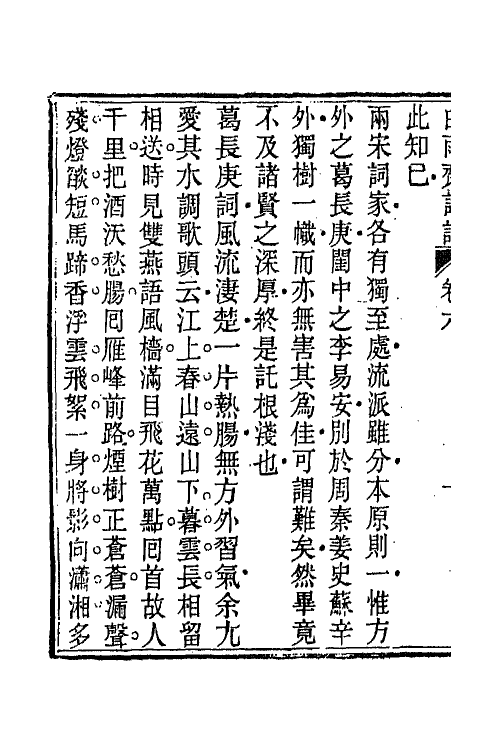 白雨齋詞話 卷六
此知已
兩宋詞家各有獨至處流派雖分本原則一惟方
外之葛長庚閨中之李易安別於周秦姜史蘇辛
外獨樹一幟而亦無害其爲佳可謂難矣然畢竟
不及諸賢之深厚終是託根淺也
葛長庚詞風流淒楚一片熱腸無方外習氣余尤
愛其水調歌頭云江上春山遠山下暮雲長相留
相送時見雙燕語風檣滿目飛花萬點囘首故人
千里把酒沃愁腸囘雁峰前路煙樹正蒼蒼漏聲
殘燈燄短馬蹄香浮雲飛絮一身將影向瀟湘多